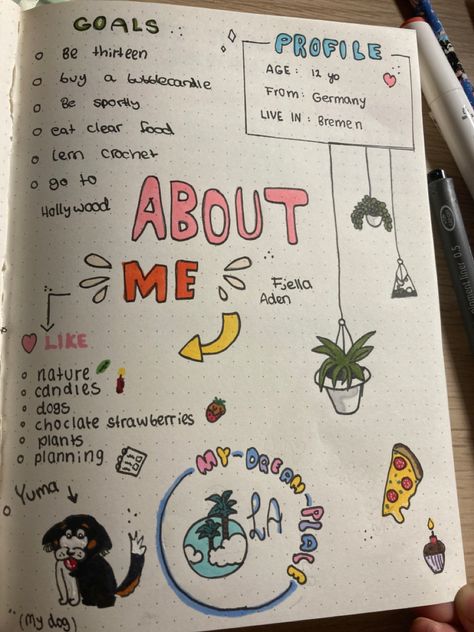 GOALS
Be thirteen
buy a bubblecandle
Be sportly
eat clear food
lern crochet
go to
Hollywood
PROFILE
AGE: 12 yo
From: Germany
LIVE IN: Bremen
ABOUT
ME
Fjella
Aden
LIKE
nature
candies
dogs
choclate strawberries
plants
planning
Yuma
(My dog)
MY-DREAM-PLACE
LA